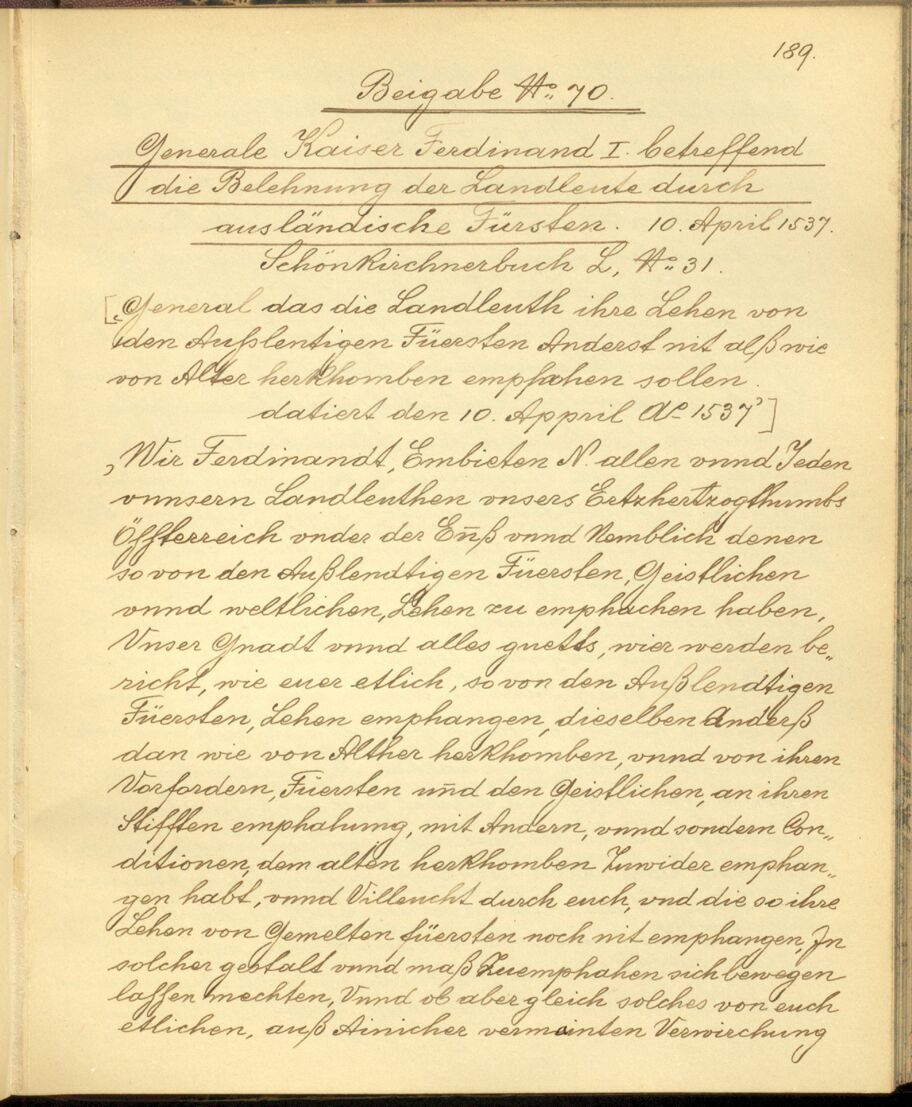 189.
Beigabe No. 70.
Generale Kaiser Ferdinand I. betreffend
die Belehnung der Landleute durch
ausländische Fürsten. 10. April 1537.
Schönkirchnerbuch L, No. 31.
[„General das die Landleuth ihre Lehen von
den Außlentigen Füersten Anderst nit alß wie
von Alter herkhomben empfahen sollen.
datiert den 10. Appril Ao 1537“]
„Wir Ferdinandt, Embieten N. allen vnnd Jeden
vnnsern Landleuthen vnsers Ertzhertzogthumbs
Öffterreich vnder der Enß vnnd Nemblich denen
so von den Außlendtigen Füersten, Geistlichen
vnnd weltlichen, Lehen zu emphachen haben,
Vnser Gnadt vnnd alles guetts, wier werden be„
richt, wie euer etlich, so von den Außlendtigen
Füersten, Lehen emphangen, dieselben Anderß
dan wie von Alther herkhomben, vnnd von ihren
Vorfordern, Füersten und den Geistlichen, an ihren
Stifften emphahung, mit Andern, vnnd sondern Con„
ditionen, dem alten herkhomben Zuwider emphan„
gen habt, vnnd Villeucht durch euch, vnd die so ihre
Lehen von Gemelten füersten noch nit emphangen, In
solcher gestalt vnnd maß Zuemphahen sich bewegen
laffen mechten, Vnnd ob aber gleich solches von euch
etlichen, auß Ainicher vermainten Verwirchung